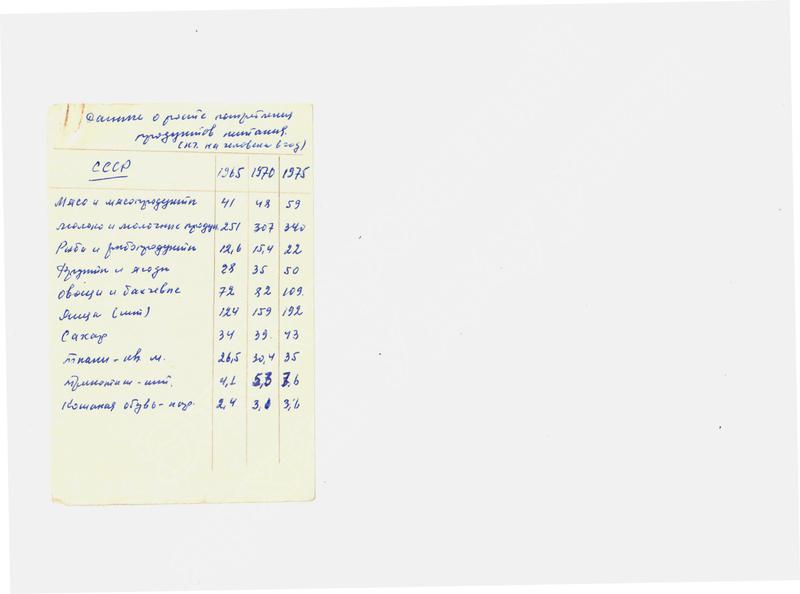 Данные о росте потребления
продуктов питания.
(кг. на человека в год)
СССР 1965 1970 1975
Мясо и мясопродукты 41 48 59
молоко и молочные продук. 251 307 340
Рыба и рыбопродукты 12,6 15,4 22
Фрукты и ягоды 28 35 50
овощи и бахчевые 72 82 109.
Яйца (шт) 124 159 192
Сахар 34 39. 43
ткани - кв. м. 26,5 30,4 35
трикотаж - шт. 4,1 5,3 7,6
Кожаная обувь - пар. 2,4 3,0 3,6